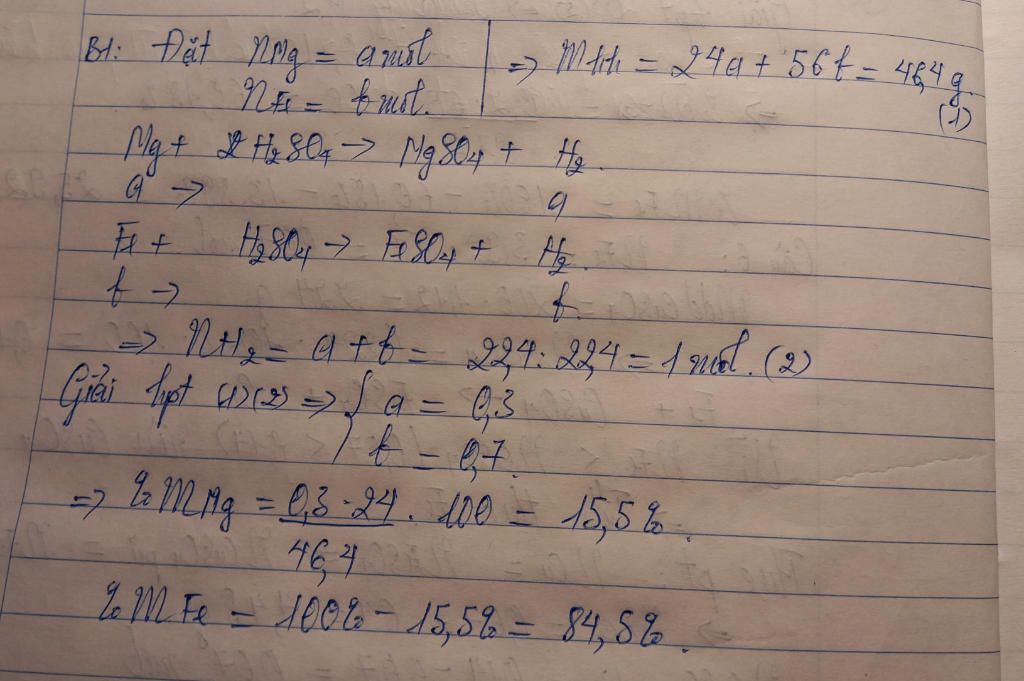 B1: Đặt nMg = a mol
nFe = b mol.
=> mhh = 24a + 56b = 46,4 g
(1)
Mg + H2SO4 -> MgSO4 + H2.
a -> a
Fe + H2SO4 -> FeSO4 + H2.
b -> b.
=> nH2 = a + b = 22,4 : 22,4 = 1 mol. (2)
Giải hpt (1)(2) => { a = 0,3
b = 0,7.
=> %mMg = 0,3 . 24 . 100 = 15,5%.
46,4
%mFe = 100% - 15,5% = 84,5%.